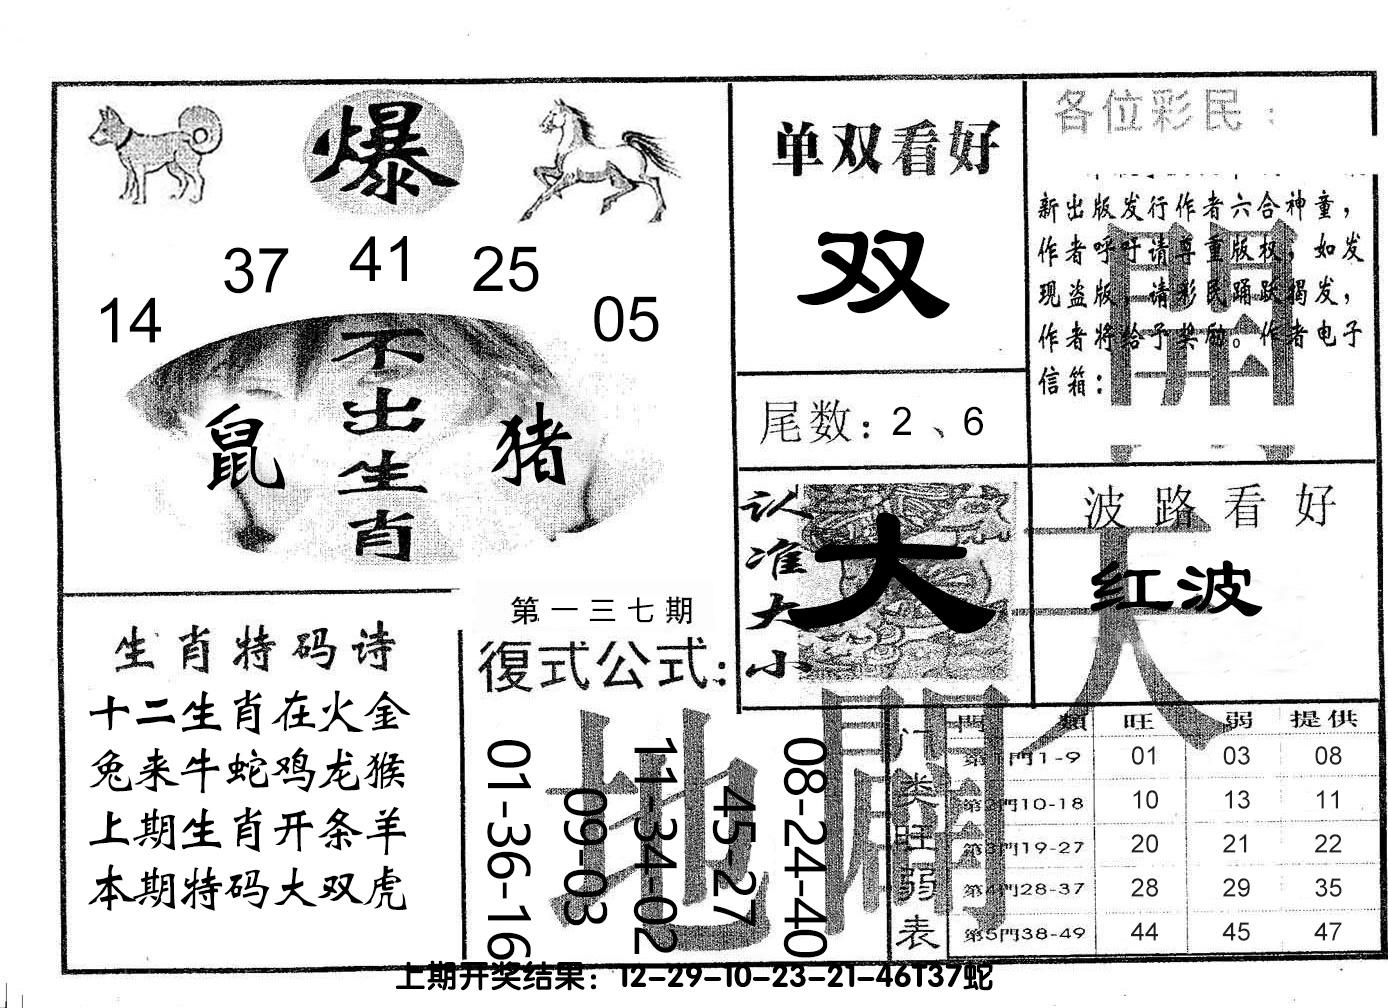 爆
37 41 25
14 05
不出生肖
鼠 猪
单双看好
双
尾数：2、6
各位彩民：
新出版发行作者六合神童，
作者呼吁请尊重版权，如发
现盗版，请彩民踊跃揭发，
作者将给予奖励。作者电子
信箱：
開
认准大小
大
波路看好
红波
天
生肖特码诗
十二生肖在火金
兔来牛蛇鸡龙猴
上期生肖开条羊
本期特码大双虎
第一三七期
復式公式：
01-36-16
09-03
11-34-02
45-27
08-24-40
地
門类旺弱表
門 類 旺 弱 提供
第1門1-9 01 03 08
第2門10-18 10 13 11
第3門19-27 20 21 22
第4門28-37 28 29 35
第5門38-49 44 45 47
上期开奖结果：12-29-10-23-21-46T37蛇